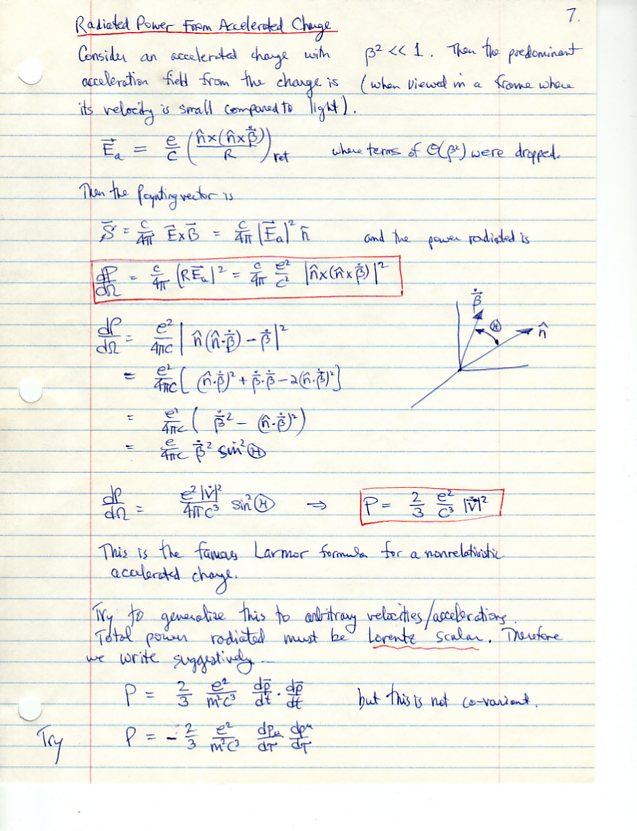 7.
Radiated Power From Accelerated Charge
Consider an accelerated charge with β² << 1. Then the predominant
acceleration field from the charge is (when viewed in a frame where
its velocity is small compared to light).
E⃗ₐ = e/c ( n̂×(n̂×β⃗̇) / R )ret where terms of O(β²) were dropped.
Then the Poynting vector is
S⃗ = c/4π E⃗×B⃗ = c/4π |E⃗ₐ|² n̂ and the power radiated is
dP/dΩ = c/4π |RE⃗ₐ|² = c/4π e²/c² |n̂×(n̂×β⃗̇)|²
β⃗̇
Θ
n̂
dP/dΩ = e²/4πc | n̂(n̂·β⃗̇) − β⃗̇ |²
= e²/4πc [ (n̂·β⃗̇)² + β⃗̇·β⃗̇ − 2(n̂·β⃗̇)² ]
= e²/4πc ( β⃗̇² − (n̂·β⃗̇)² )
= e/4πc β⃗̇² sin²Θ
dP/dΩ = e²|v⃗̇|²/4πc³ sin²Θ ⇒ P = 2/3 e²/c³ |v⃗̇|²
This is the famous Larmor formula for a nonrelativistic
accelerated charge.
Try to generalize this to arbitrary velocities/accelerations.
Total power radiated must be Lorentz scalar. Therefore
we write suggestively --
P = 2/3 e²/m²c³ dp⃗/dt · dp⃗/dt but this is not co-variant.
Try P = − 2/3 e²/m²c³ dp_μ/dτ dp^μ/dτ